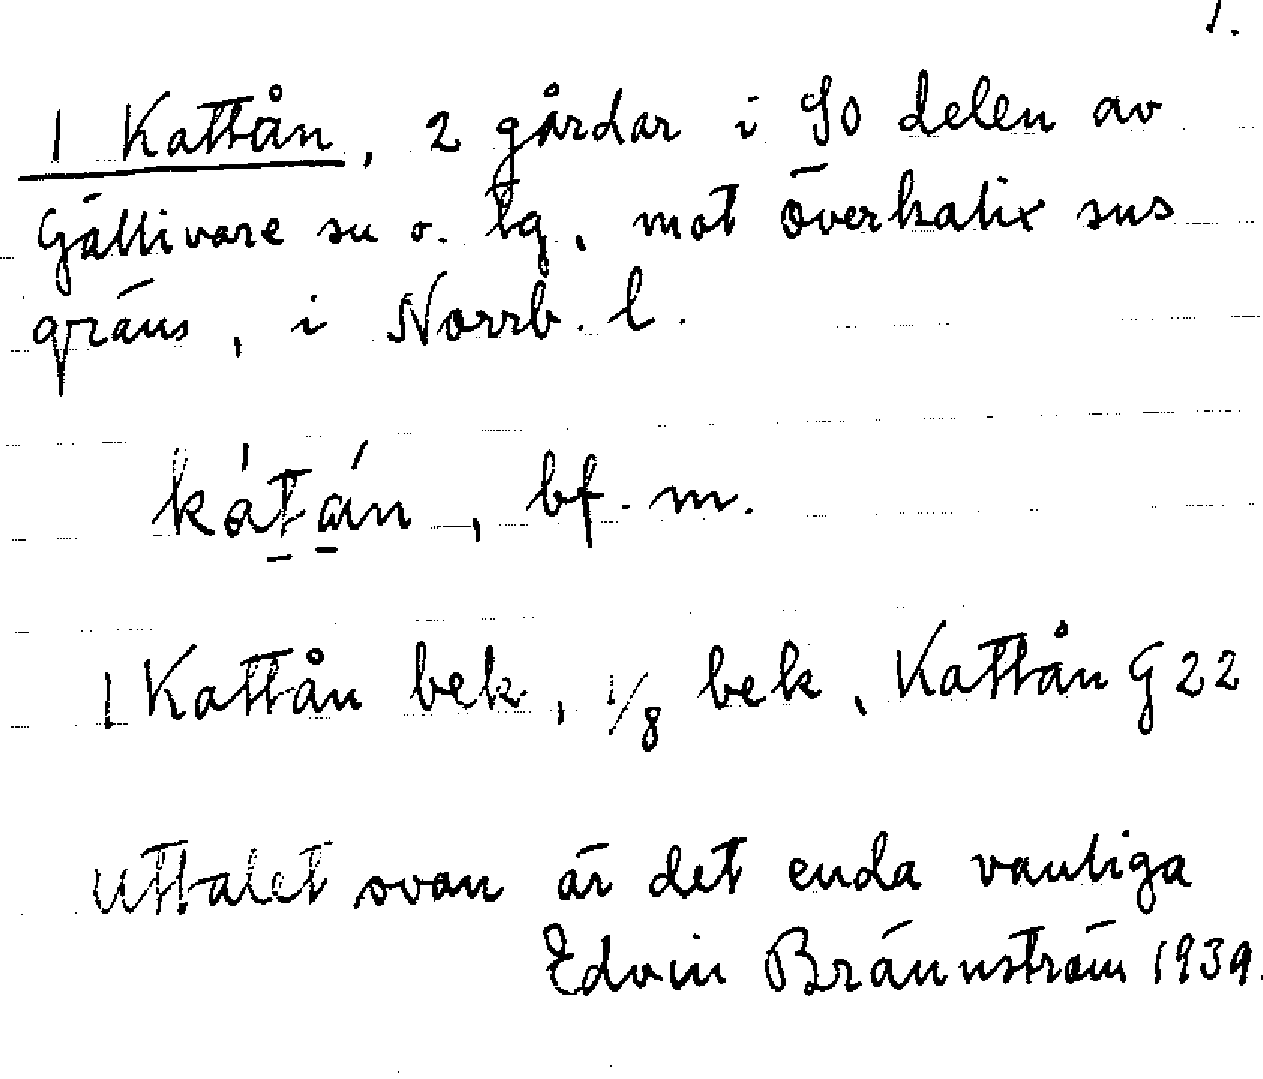 1.
1 Kattån, 2 gårdar i SO delen av
Gällivare sn o. lg, mot Överkalix sns
gräns, i Norrb. l.
kátán, bf. m.
1 Kattån bek, 1/8 bek, Kattån G 22
Uttalet ovan är det enda vanliga
Edvin Brännström 1939.